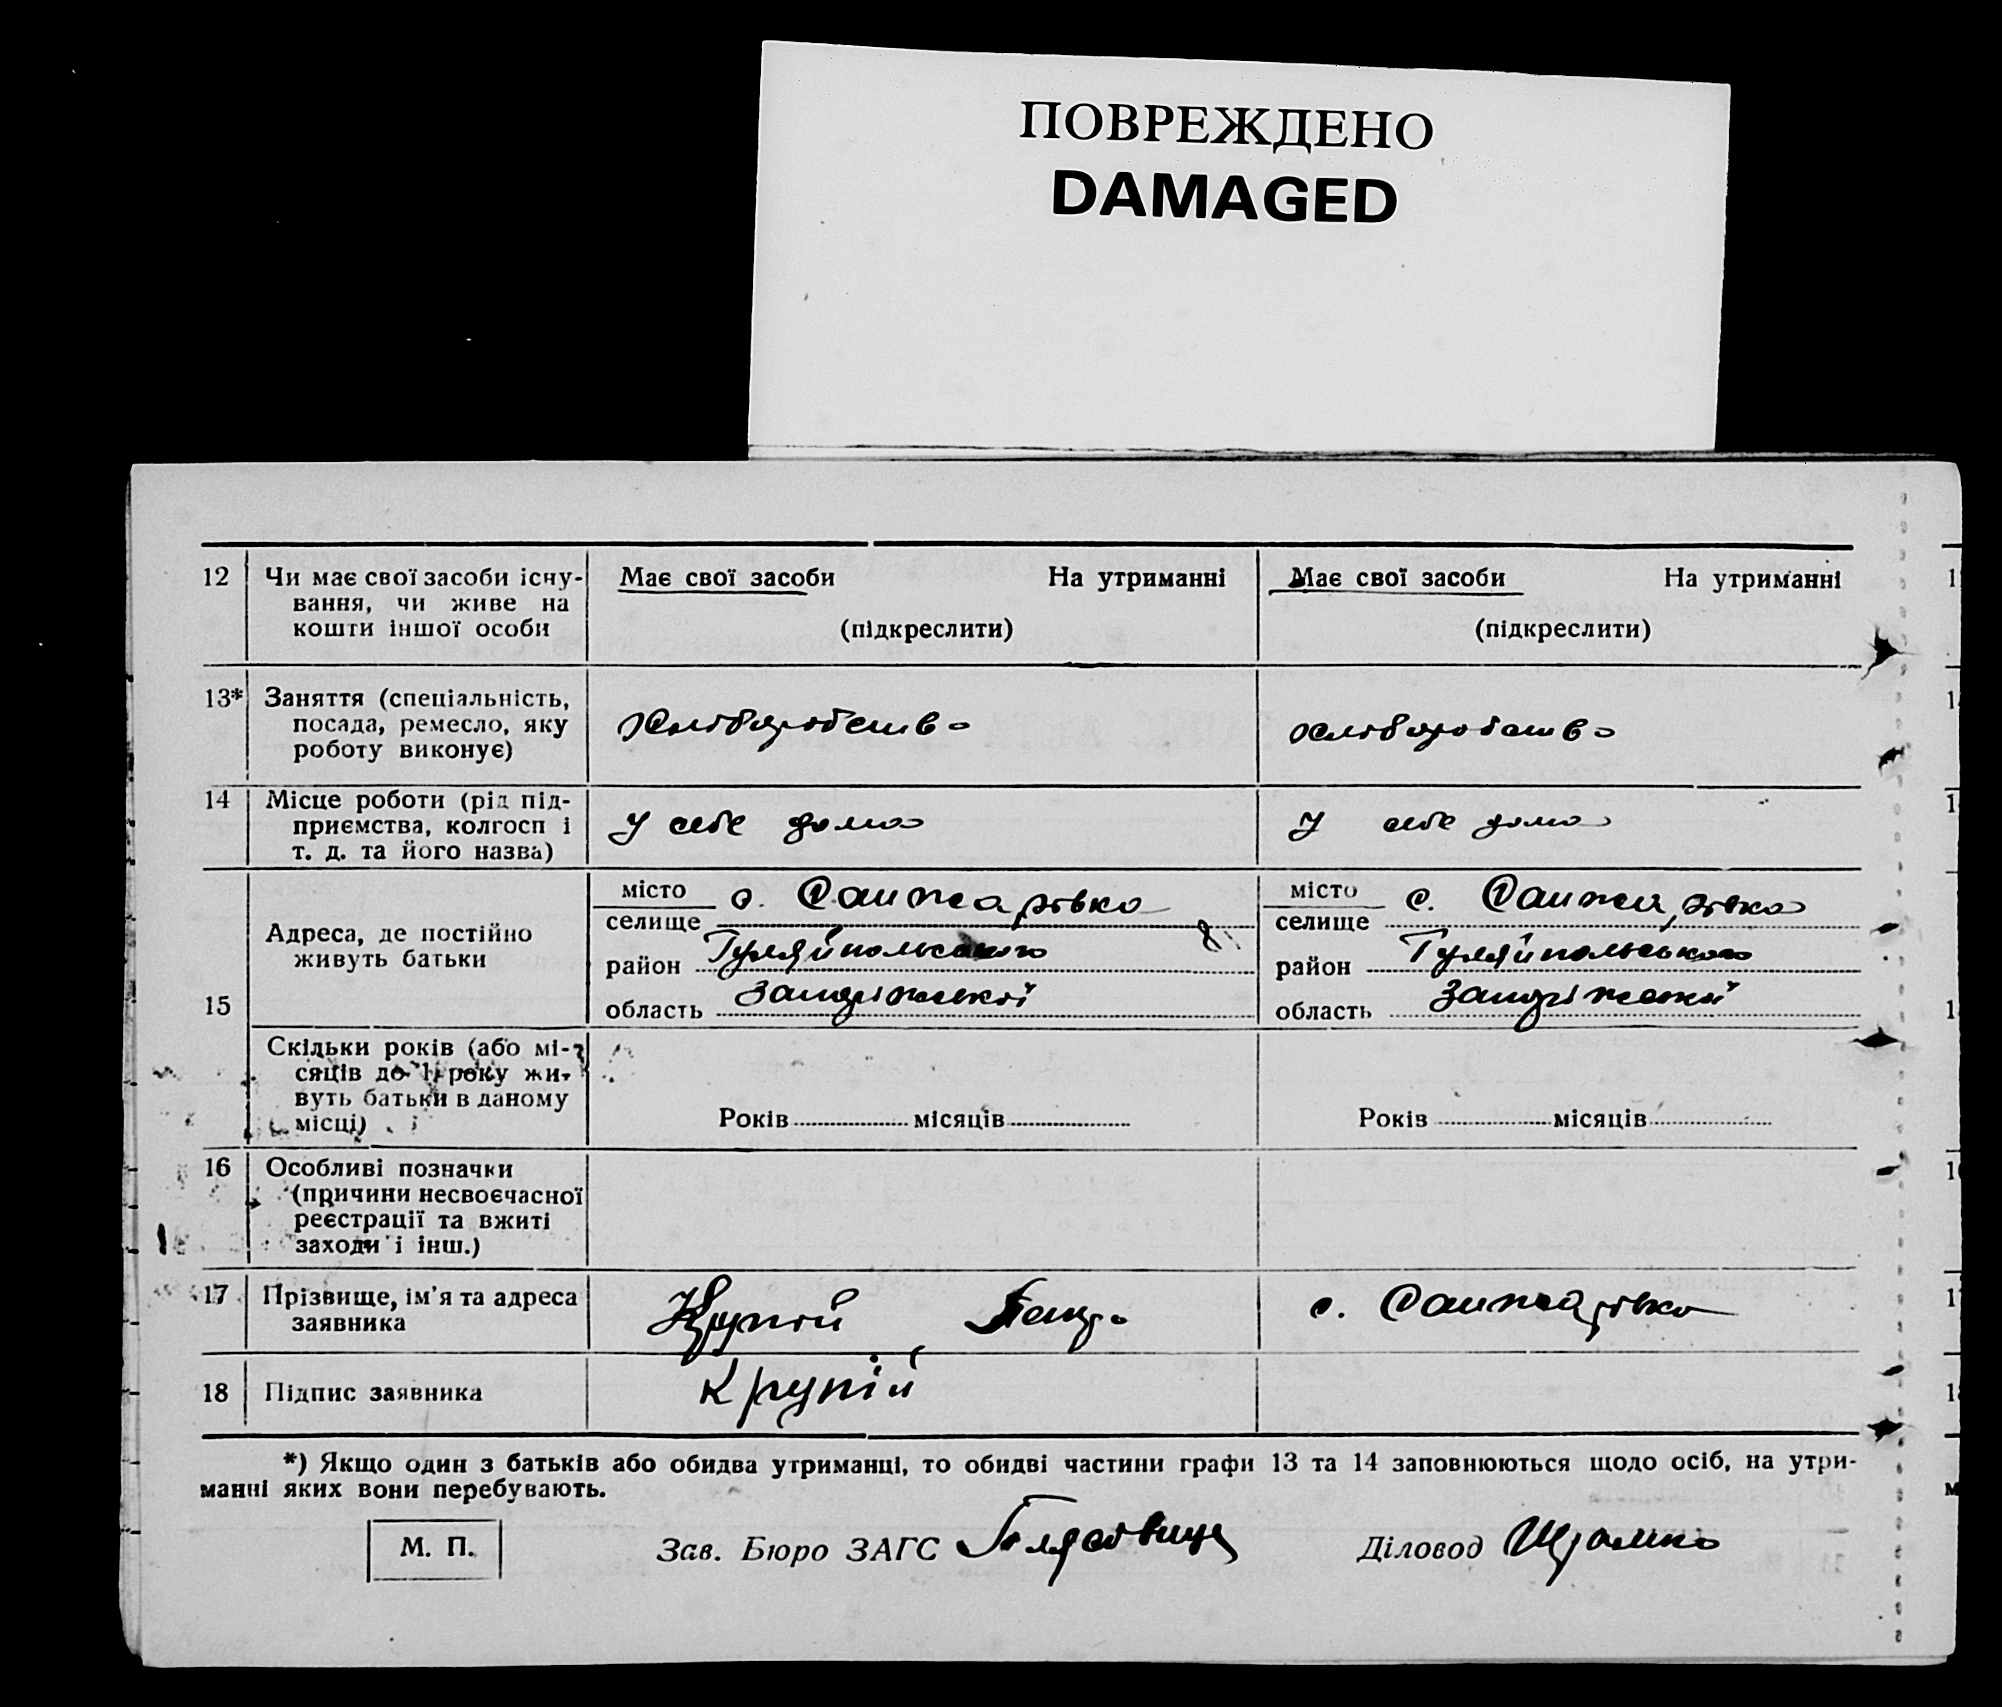 ПОВРЕЖДЕНО
DAMAGED
12 Чи має свої засоби існу-
вання, чи живе на
кошти іншої особи
Має свої засоби На утриманні
(підкреслити)
Має свої засоби На утриманні
(підкреслити)
13* Заняття (спеціальність,
посада, ремесло, яку
роботу виконує)
Хліборобство
хліборобство
14 Місце роботи (рід під-
приємства, колгосп і
т. д. та його назва)
У себе дома
У себе дома
15
Адреса, де постійно
живуть батьки
місто
селище
с. Санжарівка
район Гуляйпольського
область Запоріжської
місто
селище
с. Санжарівка
район Гуляйпольського
область Запоріжської
Скільки років (або мі-
сяців до 1 року жи-
вуть батьки в даному
місці)
Років місяців
Років місяців
16 Особливі позначки
(причини несвоєчасної
реєстрації та вжиті
заходи і інш.)
17 Прізвище, ім'я та адреса
заявника
Крупій
с. Санжарівка
18 Підпис заявника
Крупій
*) Якщо один з батьків або обидва утриманці, то обидві частини графи 13 та 14 заповнюються щодо осіб, на утри-
манні яких вони перебувають.
М. П.
Зав. Бюро ЗАГС
Діловод